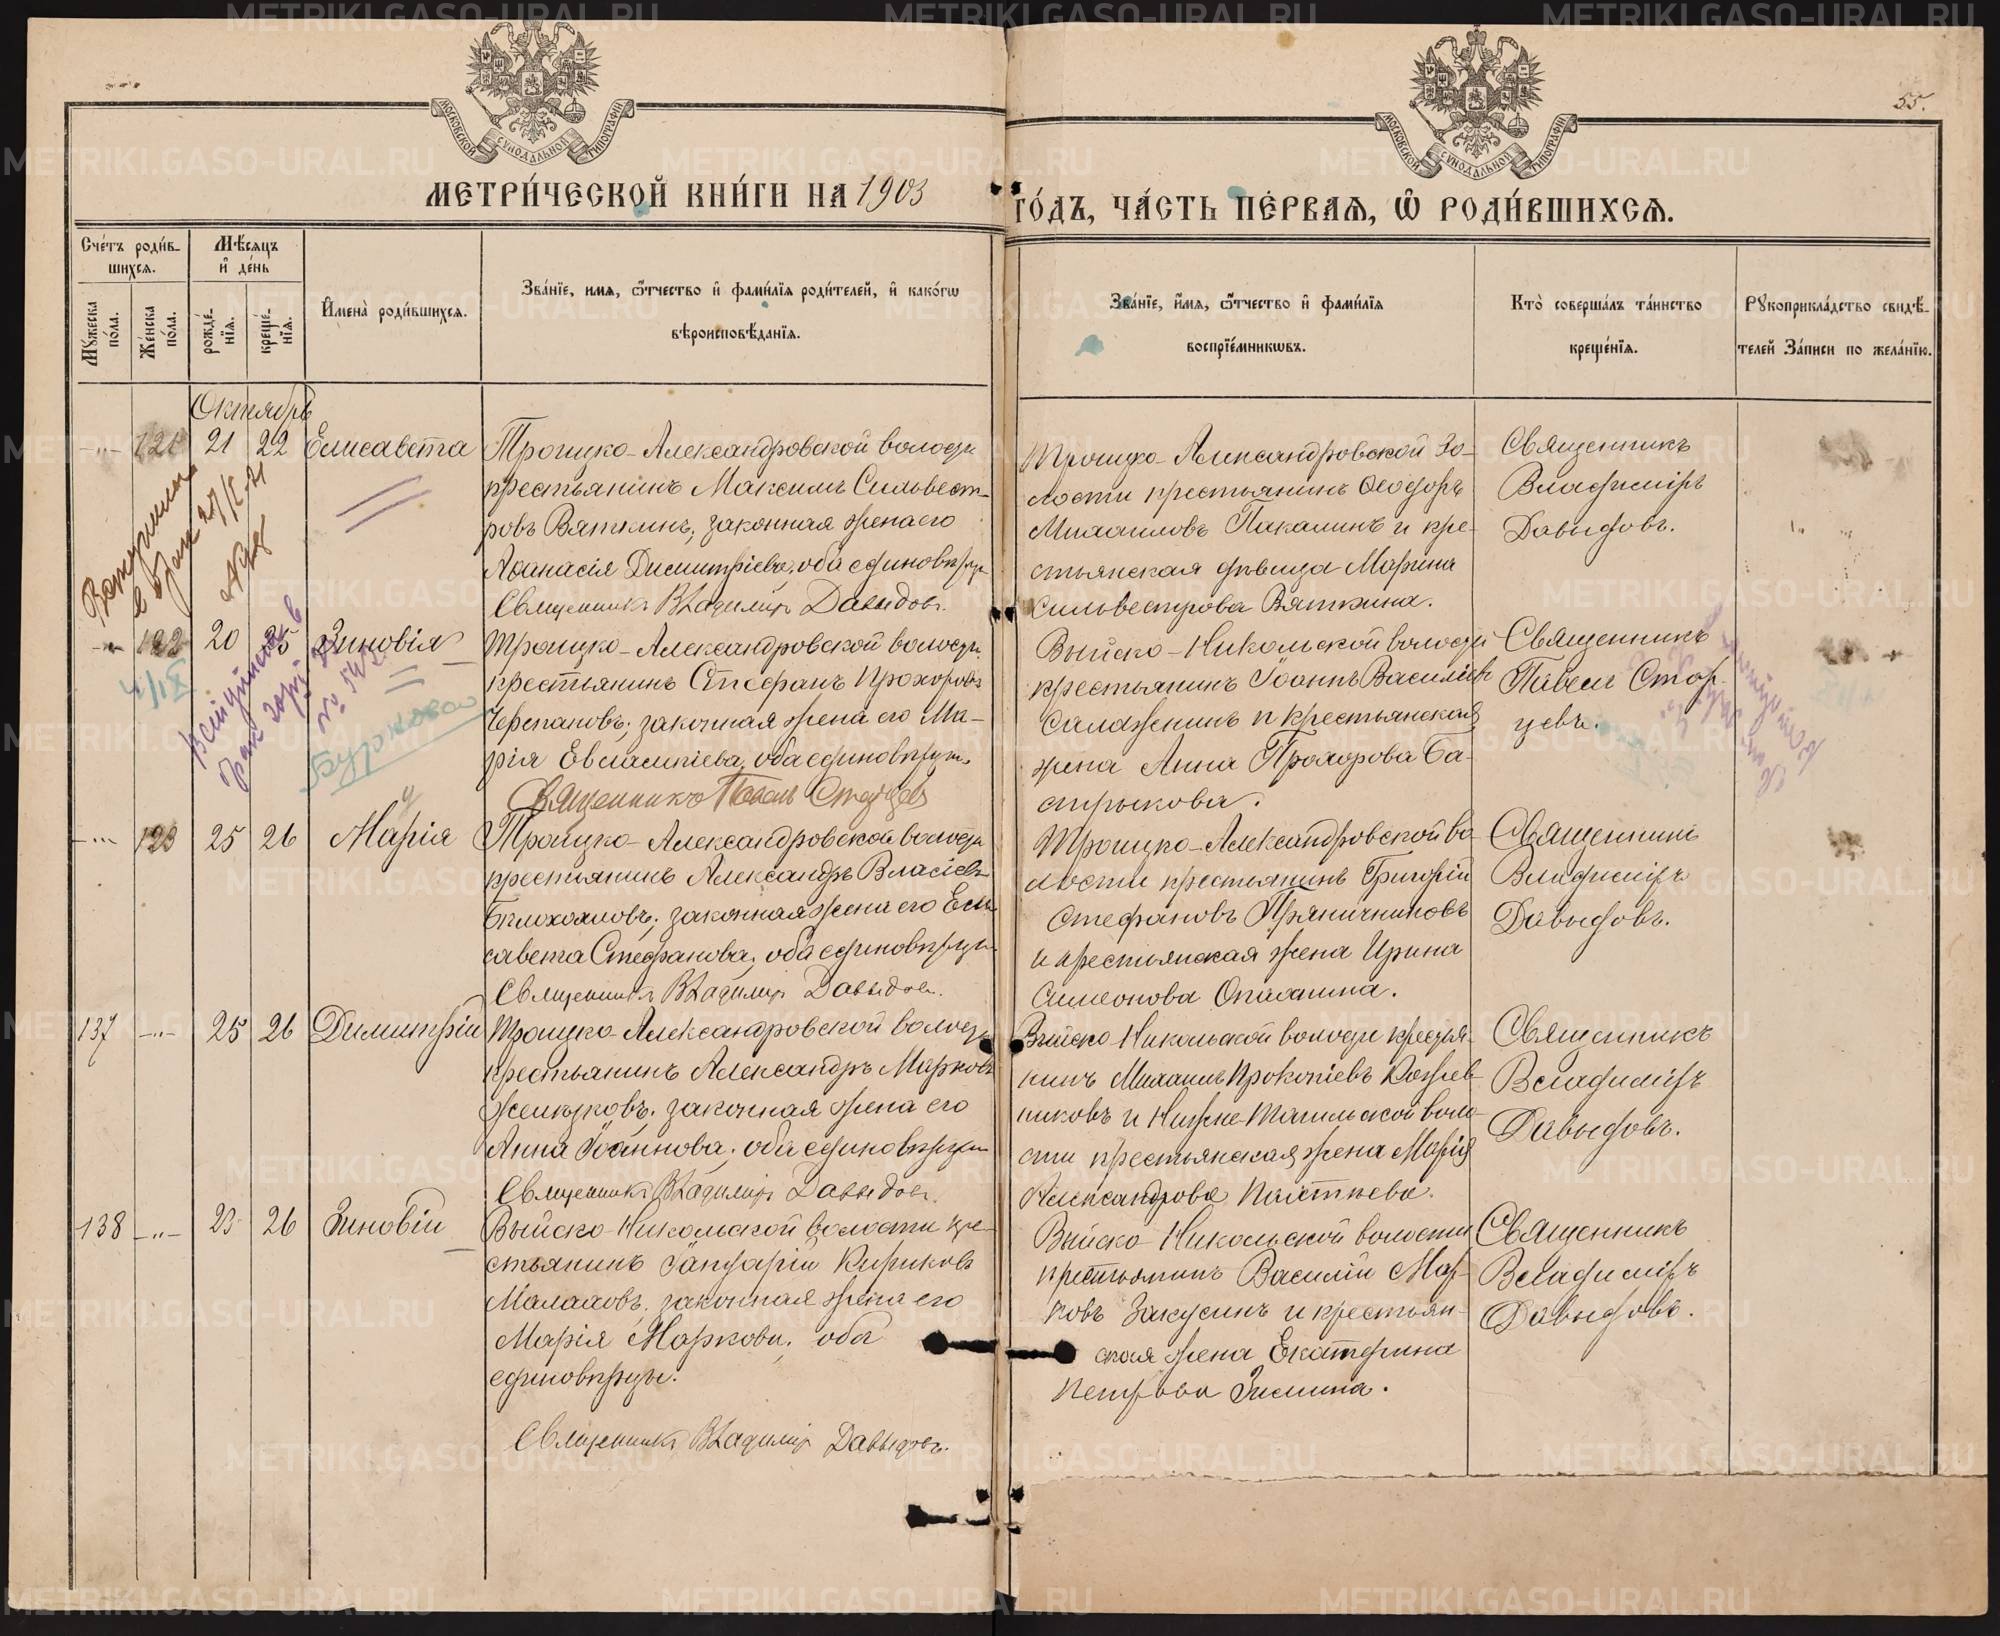 55.
МОСКОВСКОЙ СѴНОДАЛЬНОЙ ТИПОГРАФІИ
МОСКОВСКОЙ СѴНОДАЛЬНОЙ ТИПОГРАФІИ
МЕТРИ́ЧЕСКОЙ КНИ́ГИ НА 1903
ГО́ДЪ, ЧА́СТЬ ПЕ́РВАѦ, Ѡ РОДИ́ВШИХСѦ.
Сче́тъ роди́в-
шихсѧ.
Мѣ́сѧцъ
и҆ де́нь
Мꙋ́жеска
по́ла.
Же́нска
по́ла.
рожде́-
нїѧ.
креще́-
нїѧ.
И҆мена̀ роди́вшихсѧ.
Зва́нїе, имѧ, ѻ҆́тчество и҆ фами́лїѧ роди́телей, и҆ како́гѡ
вѣроисповѣ́данїѧ.
Зва́нїе, и҆́мѧ, ѻ҆́тчество и҆ фами́лїѧ
воспрїе́мникѡвъ.
Кто̀ соверша́лъ та́инство
креще́нїѧ.
Рꙋкоприкла́дство свидѣ́-
телей За́писи по жела́нїю.
Октябрь
-"- 121 21 22 Елисавета
Троицко-Александровской волости
крестьянинъ Максимъ Сильвест-
ровъ Вяткинъ, законная жена его
Аѳанасія Димитріева, оба единоверцы
Священникъ Владимиръ Давыдовъ.
Троицко-Александровской во-
лости крестьянинъ Ѳеодоръ
Михаиловъ Пакалинъ и кре-
стьянская девица Марина
Сильвестрова Вяткина.
Священникъ
Владиміръ
Давыдовъ.
Вступила
в брак
-"- 122 20 25 Зиновія
Троицко-Александровской волости
крестьянинъ Стефанъ Прохоровъ
Черепановъ, законная жена его Ма-
рія Евлампіева, оба единоверцы
Священникъ Павелъ Старцев
Выйско-Никольской волости
крестьянинъ Іоаннъ Василіев
Салаженинъ и крестьянская
жена Анна Прохорова Ба-
стрыкова.
Священникъ
Павелъ Стар-
цевъ.
-"- 123 25 26 Марія
Троицко-Александровской волости
крестьянинъ Александръ Власіевъ
Белохоловъ, законная жена его Ели-
савета Стефанова, оба единоверцы
Священникъ Владимиръ Давыдовъ.
Троицко-Александровской во-
лости крестьянинъ Григорій
Стефановъ Пряничниковъ
и крестьянская жена Ирина
Симеонова Опахина.
Священникъ
Владиміръ
Давыдовъ.
137 -"- 25 26 Димитрій
Троицко-Александровской волости
крестьянинъ Александръ Марковъ
законная жена его
Анна Іоаннова, оба единоверцы
Священникъ Владимиръ Давыдовъ.
Выйско-Никольской волости крестья-
нинъ Михаилъ Прокопіевъ Кожев-
никовъ и Нижне-Тагильской воло-
сти крестьянская жена Марія
Александрова
Священникъ
Владиміръ
Давыдовъ.
138 -"- 23 26 Зиновій
Выйско-Никольской волости кре-
стьянинъ Іануарій Кириковъ
Малаховъ, законная жена его
Марія Маркова, оба
единоверцы.
Священникъ Владимиръ Давыдовъ.
Выйско-Никольской волости
крестьянинъ Василій Мар-
ковъ Закусинъ и крестьян-
ская жена Екатерина
Петрова Зимина.
Священникъ
Владиміръ
Давыдовъ.
METRIKI.GASO-URAL.RU